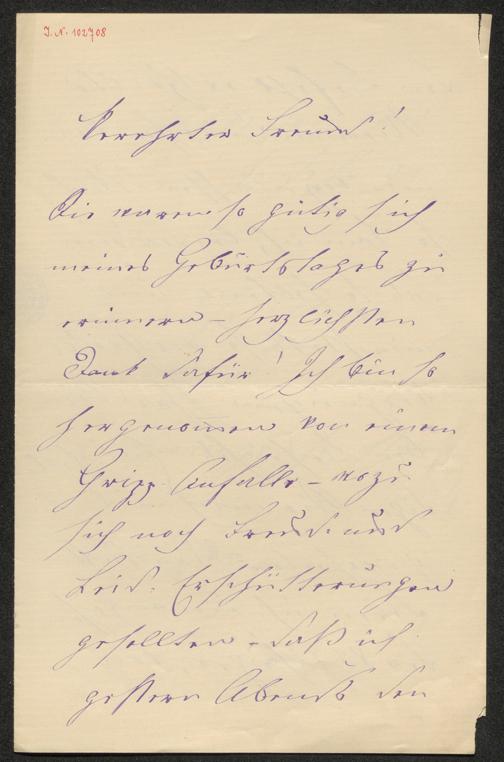 I. N. 102708
Verehrter Freund!
Sie waren so gütig sich
meines Geburtstages zu
erinnern – herzlichsten
Dank dafür! Ich bin so
hergenommen von einem
Gripp Anfalle – wozu
sich noch Freud- und
Leid- Erschütterungen
gesellten – daß ich
gestern Abends den